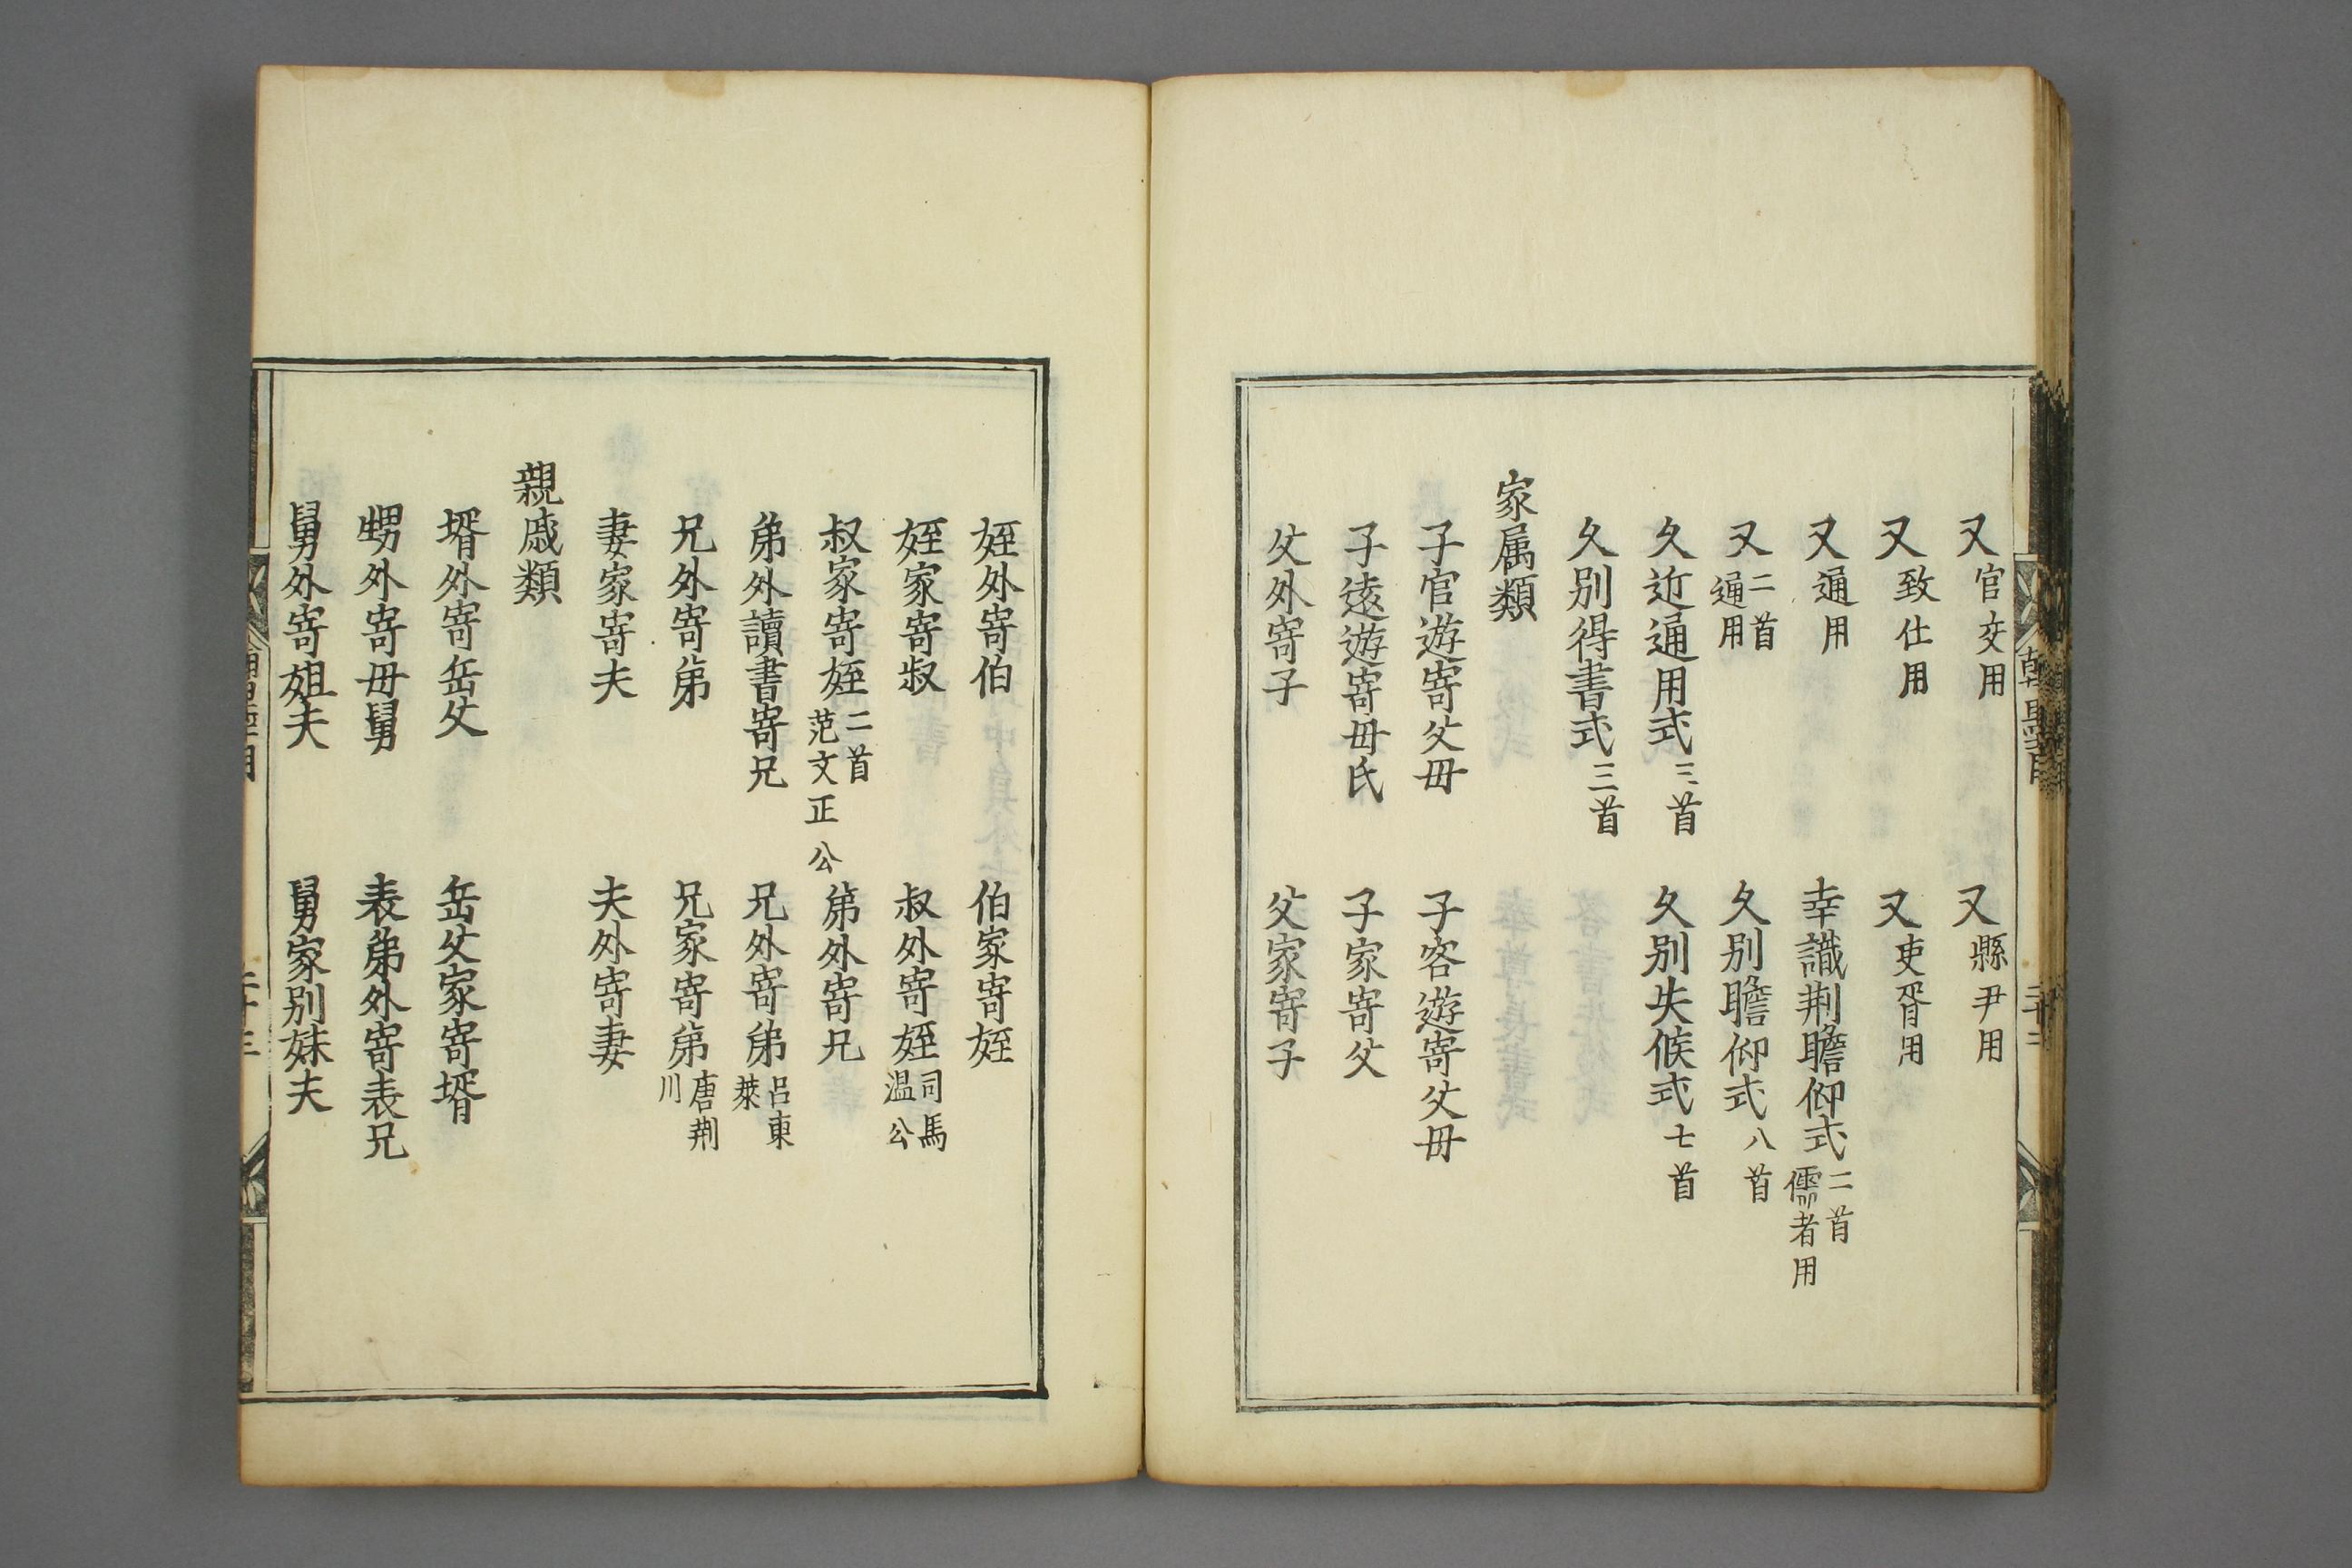 又官交用　又縣尹用
又致仕用　又吏胥用
又通用　幸識荆瞻仰式二首儒者用
又二首通用　久別瞻仰式八首
久近通用式三首　久別失候式七首
久別得書式三首
家属類
子官遊寄父毋　子客遊寄父毋
子遠遊寄毋氏　子家寄父
父外寄子　父家寄子
姪外寄伯　伯家寄姪
姪家寄叔　叔外寄姪司馬温公
叔家寄姪二首范文正公　弟外寄兄
弟外讀書寄兄　兄外寄弟吕東萊
兄外寄弟　兄家寄弟唐荆川
妻家寄夫　夫外寄妻
親戚類
壻外寄岳父　岳父家寄壻
甥外寄毋舅　表弟外寄表兄
舅外寄姐夫　舅家别妹夫